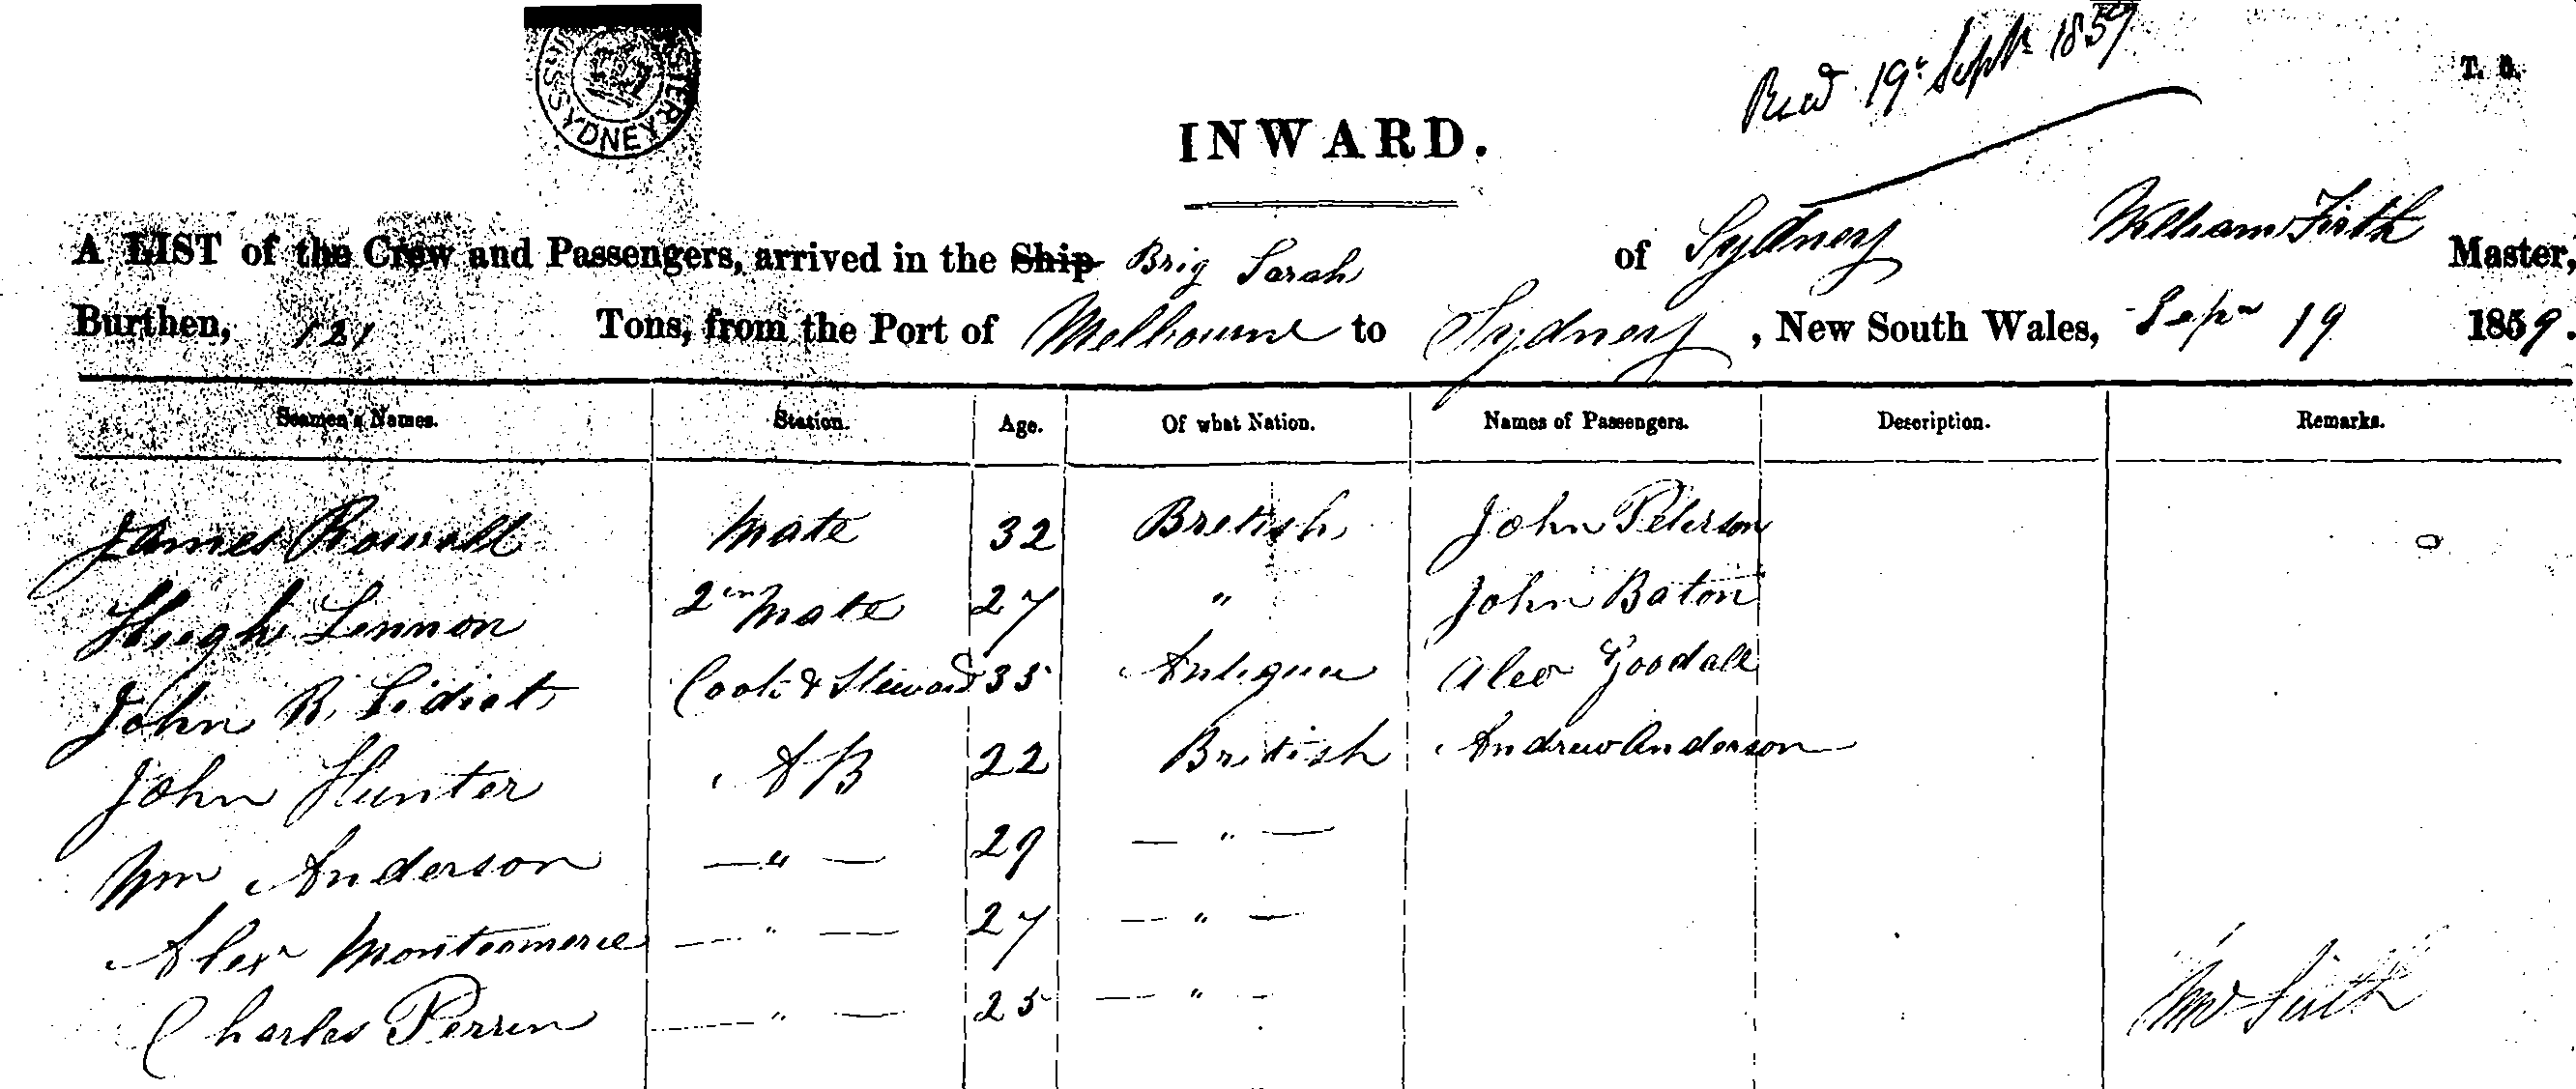 SYDNEY
Recd 19th Septr 1859
T. B.
INWARD.
A LIST of the Crew and Passengers, arrived in the Ship Brig Sarah of Sydney William Firth Master,
Burthen, 121 Tons, from the Port of Melbourne to Sydney, New South Wales, Sepr 19 1859.
Seamen's Names. Station. Age. Of what Nation. Names of Passengers. Description. Remarks.
James Rowall Mate 32 British John Peterson
Hugh Lennon 2nd Mate 27 " John Baton
John R. Lidiat Cook & Steward 35 Antigua Alexr Goodall
John Hunter AB 22 British Andrew Anderson
Wm Anderson — " — 29 — " —
Alexr Montgomerie — " — 27 — " —
Charles Perrin — " — 25 — " —
Wm Firth